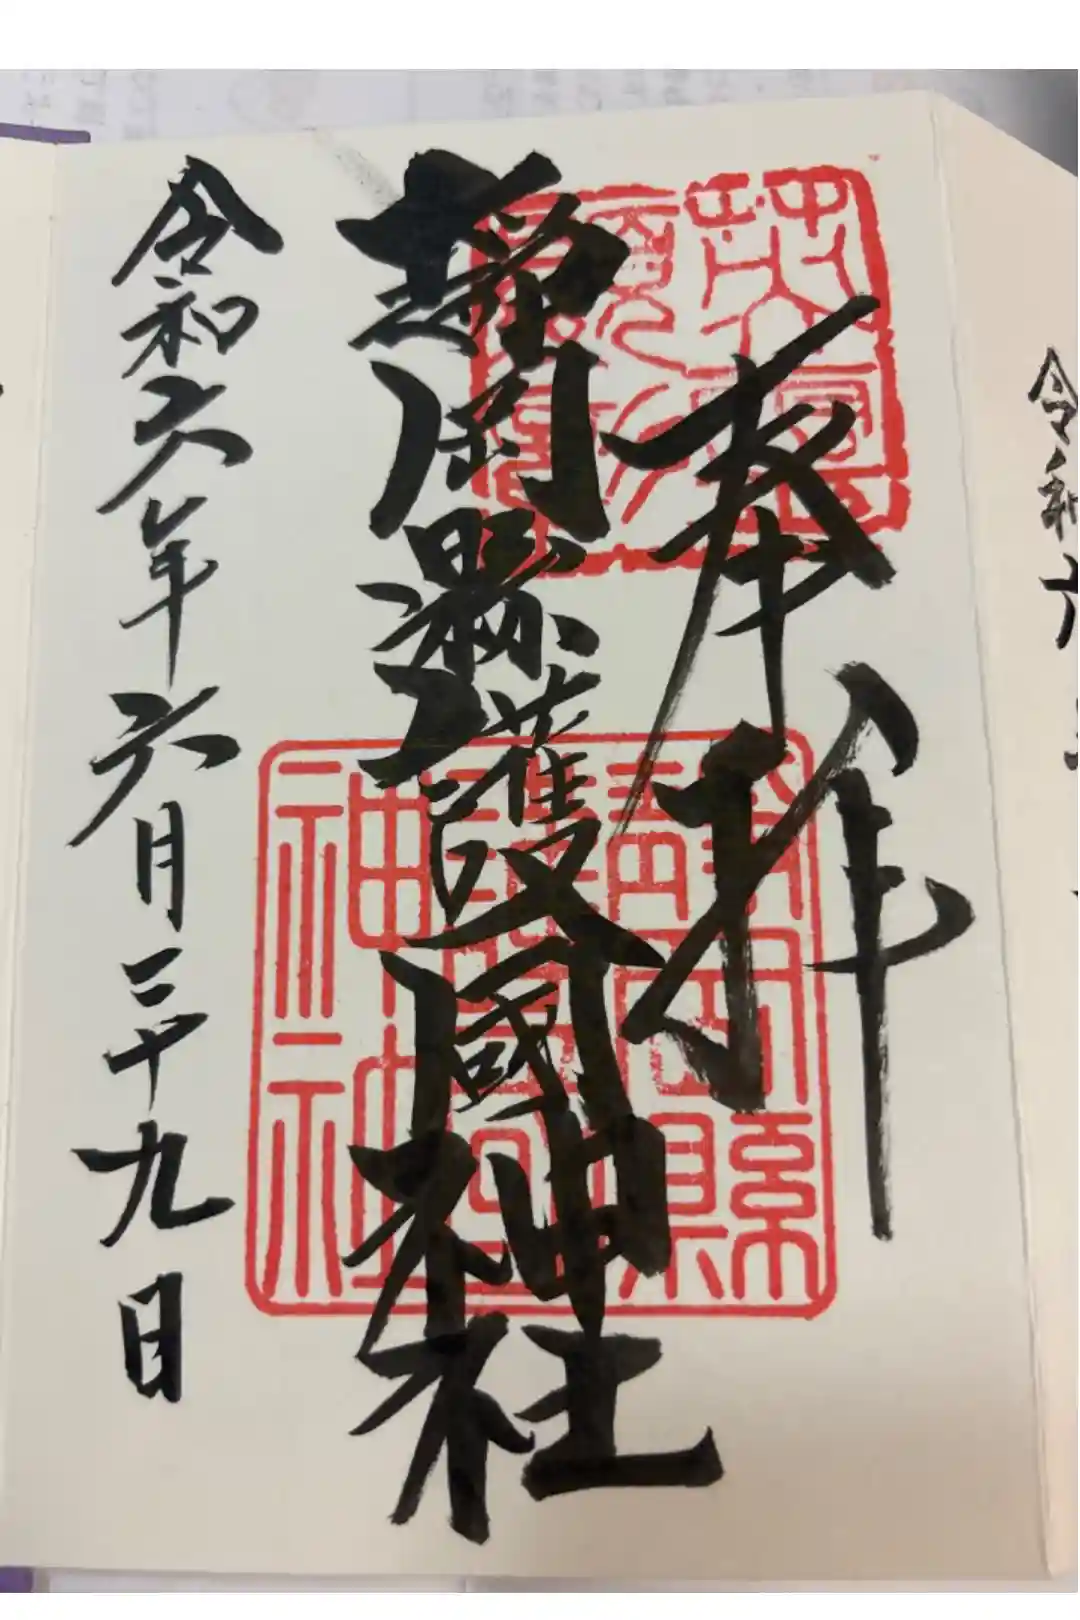 奉拝
靜岡縣護國神社
令和六年六月二十九日
靜岡縣
護國
神社
令和六